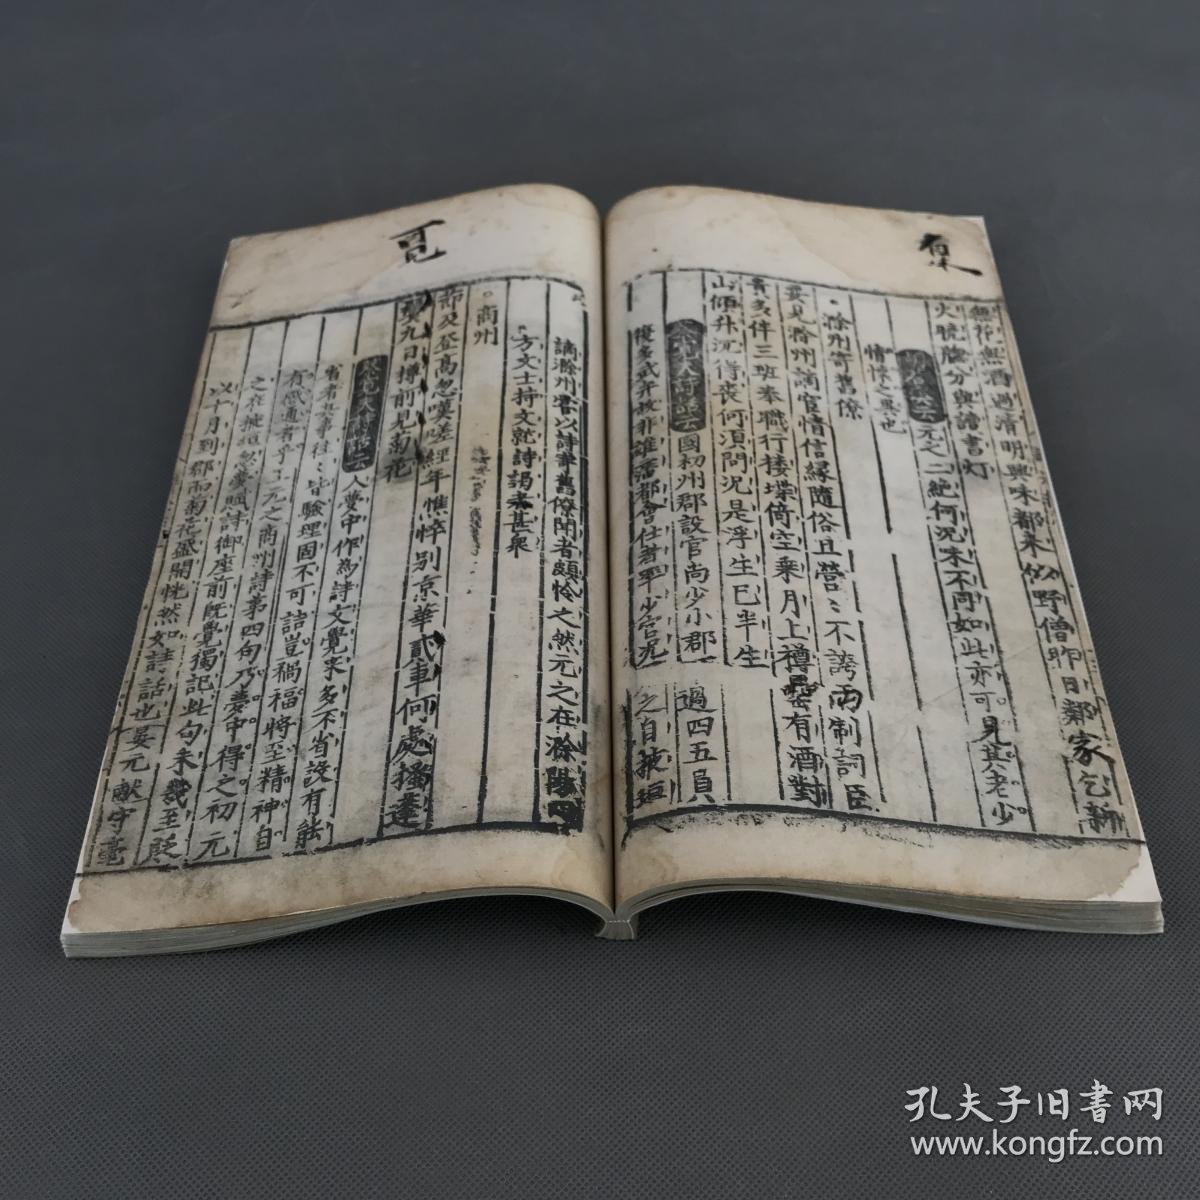 無花無酒過清明興味都來似野僧昨日鄰家乞新
火曉牕分與讀書灯
元之二絶何況味不同如此亦可見其老少
情懷之異也
滁州寄舊僚
要見滁州謫官情信緣隨俗且營〻不誇兩制詞臣
貴多伴三班奉職行楼堞倚空乗月上罇罍有酒對
山傾升沉得喪何湏問況是浮生已半生
國初州郡設官尚少小郡 過四五員
謫滁州嘗以詩寄舊僚聞者頗怜之然元之在滁陽四
方文士持文就詩謁者甚衆
商州
節及登高忽嘆嗟經年憔悴别京華貳車何處搔蓬
鬂九日罇前見菊花
人夢中作為詩文覺來多不省設有能
省者與事往〻皆驗理固不可詰豈禍福將至精神自
有感通者乎王元之商州詩第四句乃夢中得之初元
之在掖垣忽夢賦詩御座前既覺獨記此句未幾至貶
以十月到郡而菊花盛開恍然如詩話也晏元献守亳
覽
孔夫子旧書网
www.kongfz.com